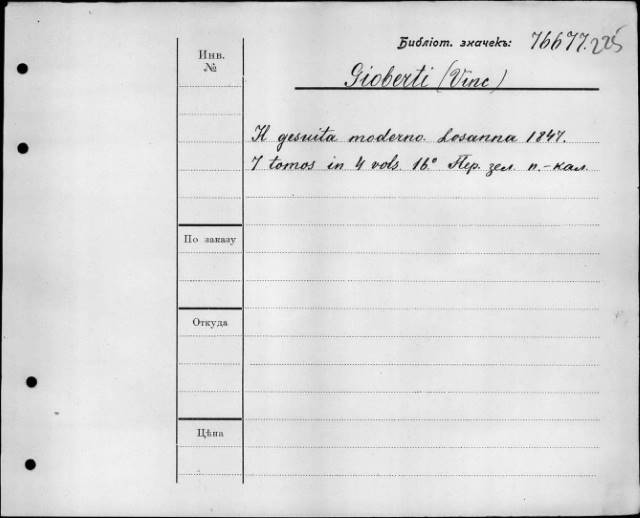 Библіот. значекъ: 76677. 225
Инв.
№
Gioberti (Vinc)
Il gesuita moderno. Losanna 1847.
7 tomos in 4 vols. 16.° Пер. зел. п.-кал.
По заказу
Откуда
Цѣна